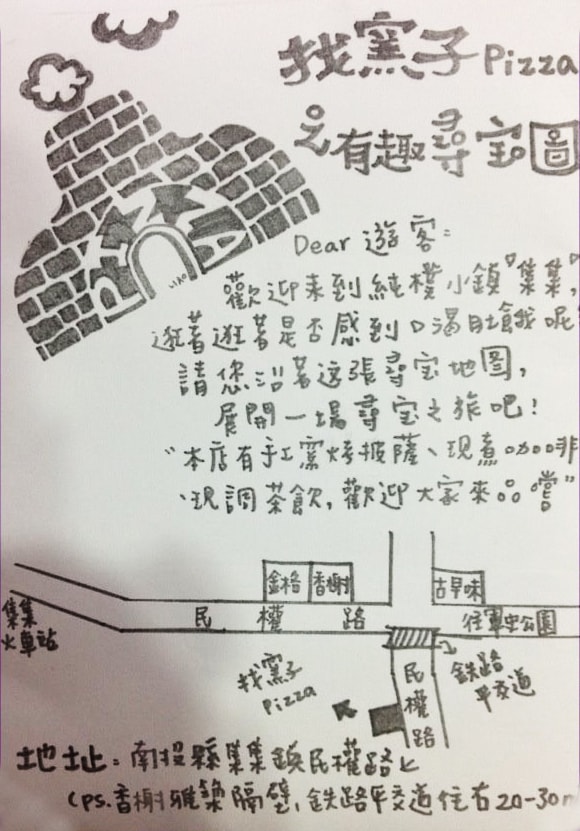 找窯子Pizza
之有趣尋宝圖
PIZZA
Dear 遊客:
歡迎来到純樸小鎮『集集』,
逛著逛著是否感到口渴肚餓呢
請您沿著这張尋宝地图,
展開一場尋宝之旅吧!
"本店有手工窯烤披薩、現煮咖啡
、現調茶飲,歡迎大家來品嚐"
金格 香榭 古早味
集集
火車站
民權路
往軍史公園
找窯子
Pizza
民權路
鐵路
平交道
地址:南投縣集集鎮民權路上
(PS.香榭雅築隔壁,鉄路平交道往右20-30m